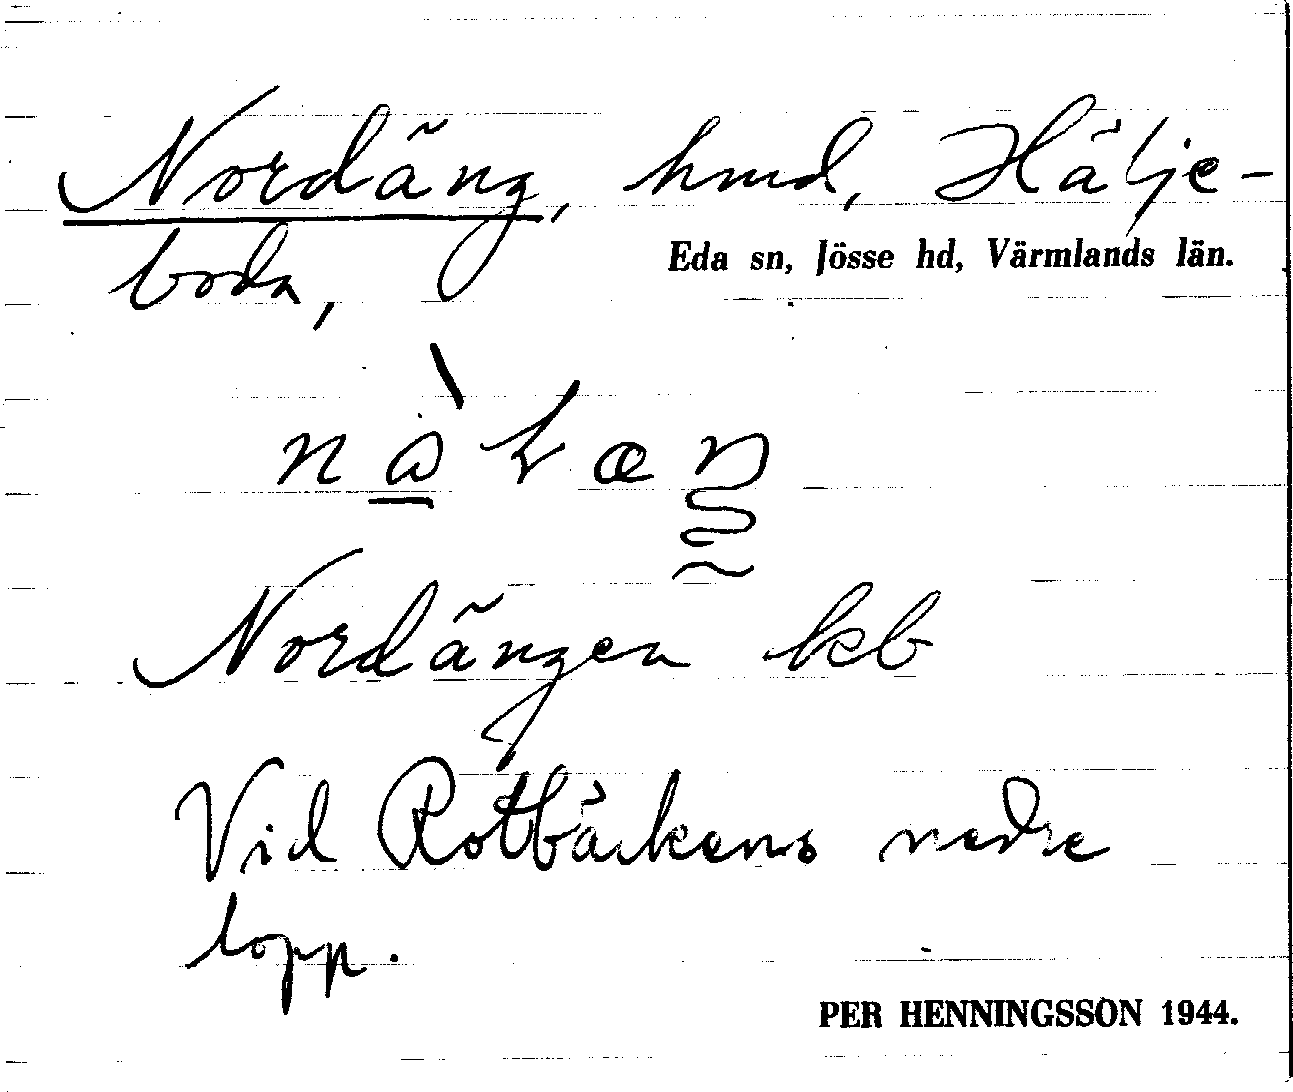 Nordäng, hmd, Hälje-
Eda sn, Jösse hd, Värmlands län.
boda,
Nordängen kb
Vid Rotbäckens nedre
lopp.
PER HENNINGSSON 1944.